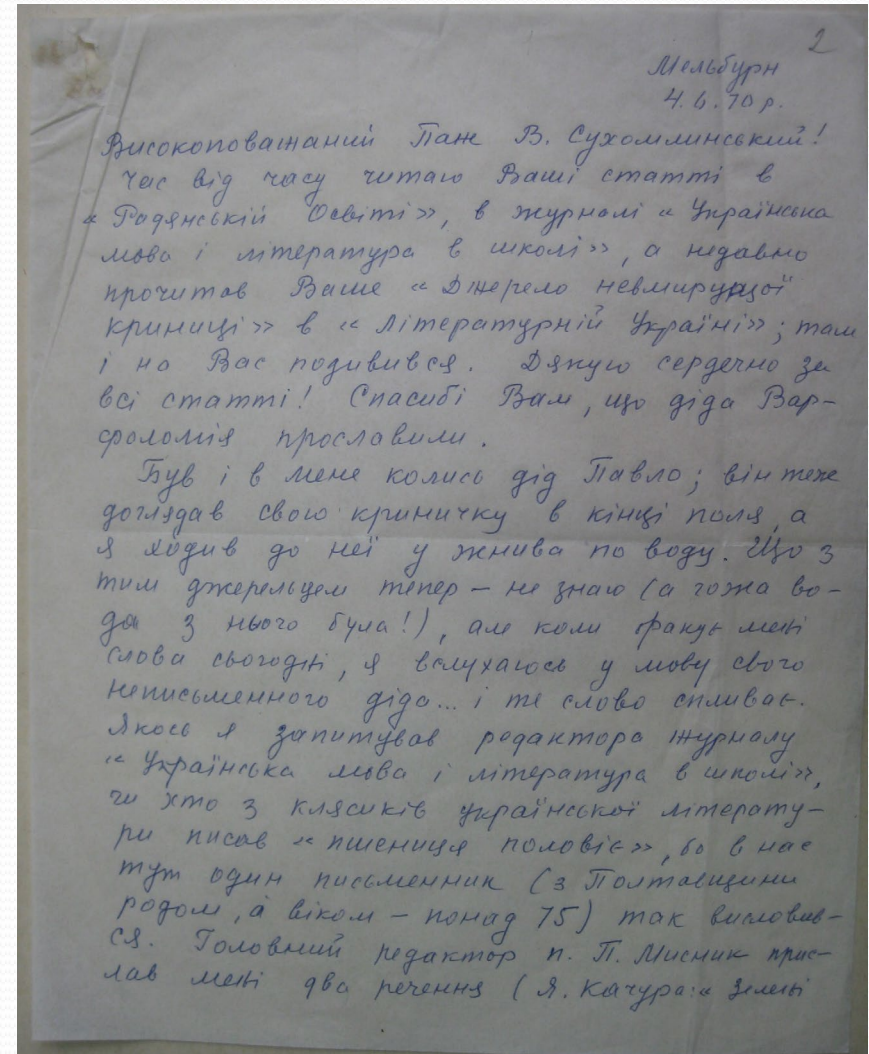 2
Мельбурн
4.6.70 р.
Високоповажаний Пане В. Сухомлинський!
Час від часу читаю Ваші статті в
«Радянській Освіті», в журналі «Українська
мова і література в школі», а недавно
прочитав Ваше «Джерело невмирущої
криниці» в «Літературній Україні»; там
і на Вас подивився. Дякую сердечно за
всі статті! Спасибі Вам, що діда Вар-
фоломія прославили.
Був і в мене колись дід Павло; він теж
доглядав свою криничку в кінці поля, а
я ходив до неї у жнива по воду. Що з
тим джерельцем тепер – не знаю (а гожа во-
да з нього була!), але коли бракує мені
слова сьогодні, я вслухаюсь у мову свого
неписьменного діда... і те слово спливає.
Якось я запитував редактора журналу
«Українська мова і література в школі»,
чи хто з клясиків української літерату-
ри писав «пшениця половіє», бо в нас
тут один письменник (з Полтавщини
родом, а віком – понад 75) так висловив-
ся. Головний редактор п. П. Мисник прис-
лав мені два речення (Я. Качура: «Зелені